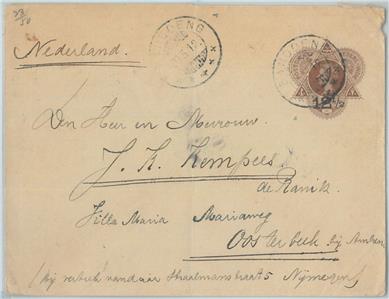 23/50
Nederland.
BANDOENG
BANDOENG
12½
Den Heer en Mevrouw
J. K. Kempees
de Ranitz
Villa Maria Mariaweg
Oosterbeek bij Arnhem
(bij vertrek naar Straalmanstraat 5 Nijmegen)